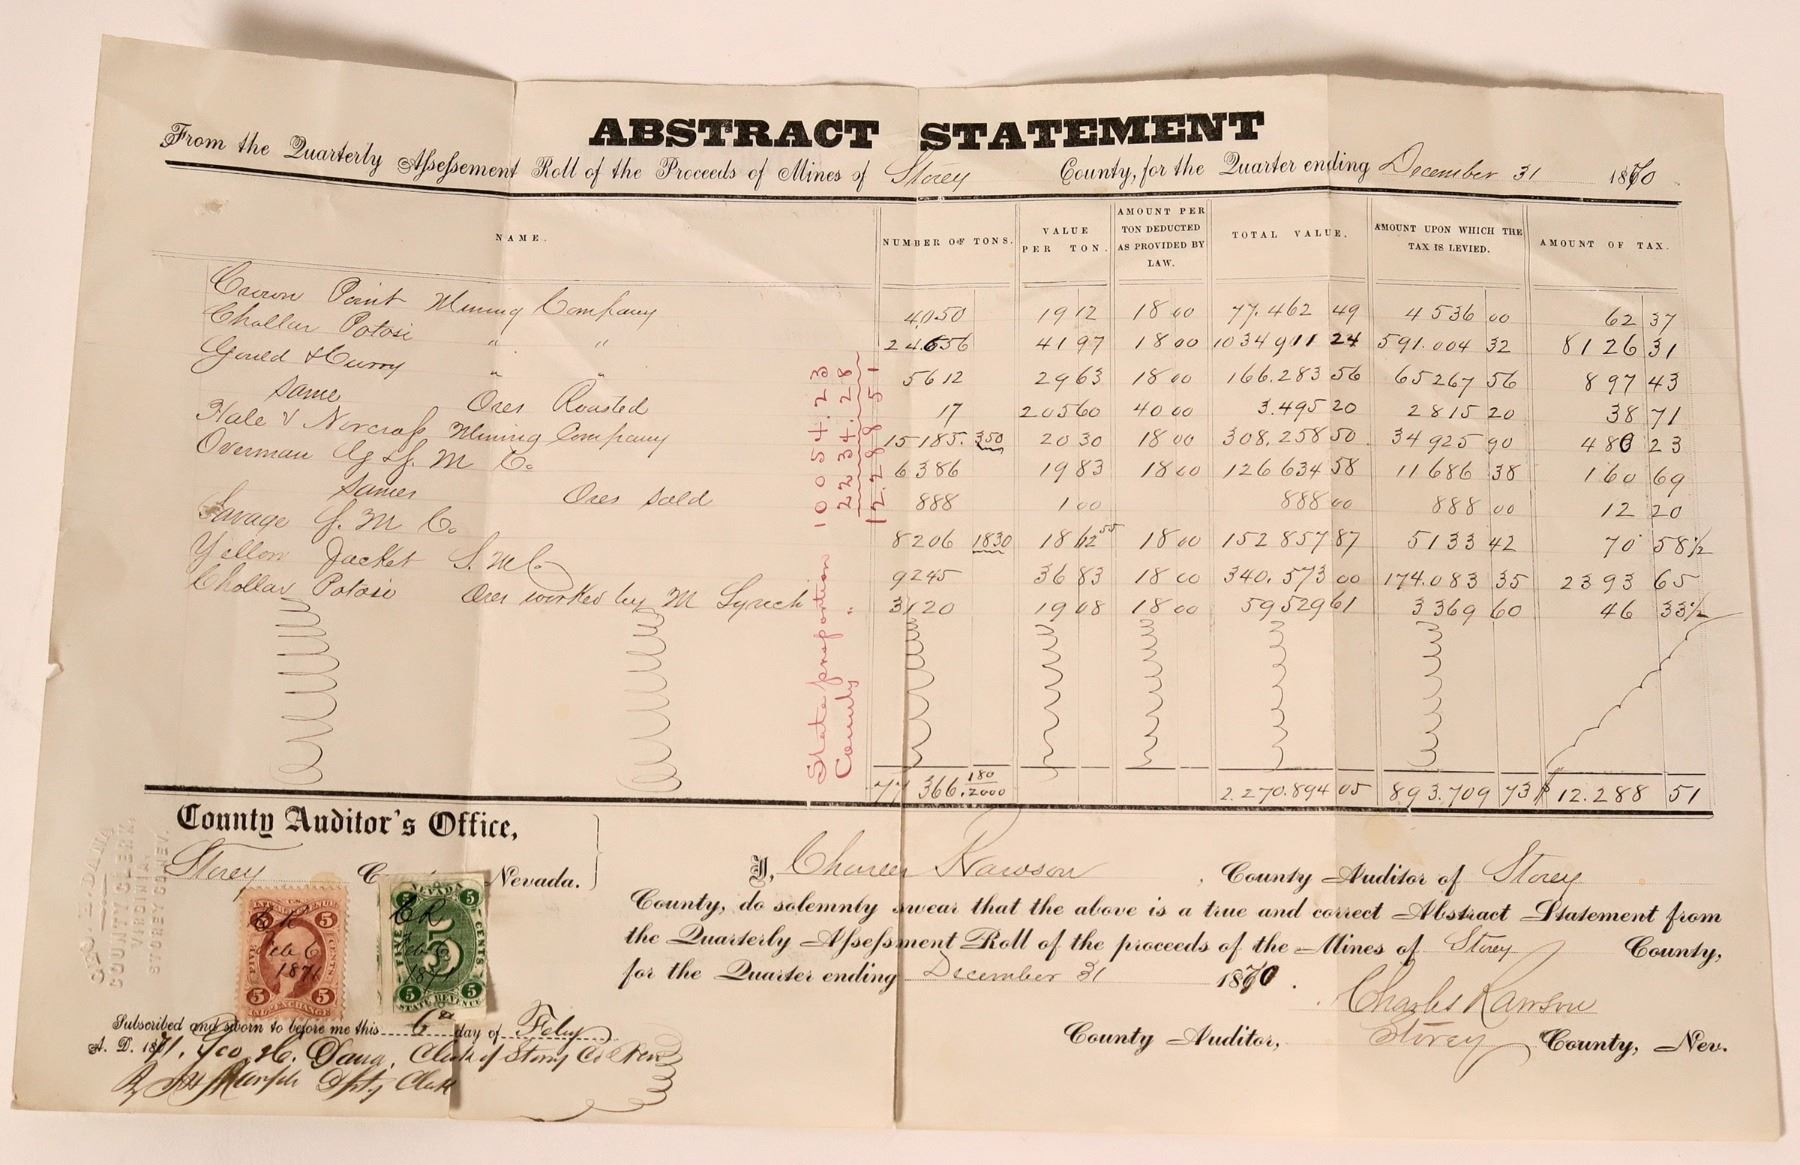 ABSTRACT STATEMENT
From the Quarterly Assessment Roll of the Proceeds of Mines of Storey County, for the Quarter ending December 31 1870
NAME. NUMBER OF TONS. VALUE PER TON. AMOUNT PER TON DEDUCTED AS PROVIDED BY LAW. TOTAL VALUE. AMOUNT UPON WHICH THE TAX IS LEVIED. AMOUNT OF TAX.
Crown Point Mining Company 4050 19 12 18 00 77.462 49 4536 00 62 37
Chollar Potosi " " 24656 41 97 18 00 1034911 24 591.004 32 8126 31
Gould & Curry " " 5612 29 63 18 00 166.283 56 65267 56 897 43
Same Ores Roasted 17 205 60 40 00 3.495 20 2815 20 38 71
Hale & Norcross Mining Company 15185. 350 20 30 18 00 308.258 50 34925 90 480 23
Overman G & S. M Co. 6386 19 83 18 00 126634 58 11686 38 160 69
Same Ores Sold 888 1 00 888 00 888 00 12 20
Savage S. M Co. 8206 1830 18 62 55 18 00 152857 87 5133 42 70 58½
Yellow Jacket S. M Co 9245 36 83 18 00 340.573 00 174.083 35 2393 65
Chollar Potosi Ores worked by M Lynch 3120 19 08 18 00 59529 61 3369 60 46 33½
State proportion 10054.23
County " 2234.28
12.288 51
77 366. 180/2000 2.270.894 05 893.709 73 $ 12.288 51
County Auditor's Office,
Storey Nevada.
GEO. H. DANA
COUNTY CLERK,
VIRGINIA,
STOREY CO. NEV.
5 5
FIVE CENTS
INL. EXCHANGE
5 5
C R
Feb 6
1871
NEVADA
5 5
FIVE CENTS
5
STATE REVENUE
5 5
C R
Feb 6
187
I, Charles Rawson, County Auditor of Storey
County, do solemnly swear that the above is a true and correct Abstract Statement from
the Quarterly Assessment Roll of the proceeds of the Mines of Storey County,
for the Quarter ending December 31 1870.
Charles Rawson
County Auditor, Storey County, Nev.
Subscribed and sworn to before me this 6th day of Feby
A. D. 1871. Geo. H. Dana, Clerk of Storey Co Nev
By Dpty Clerk